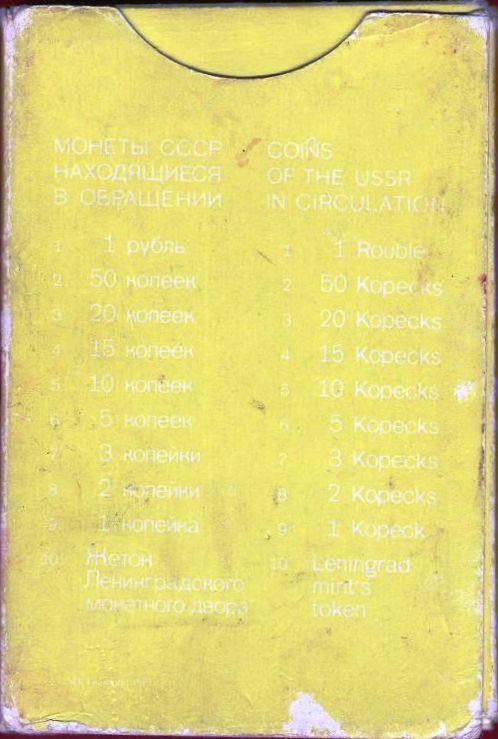 МОНЕТЫ СССР
НАХОДЯЩИЕСЯ
В ОБРАЩЕНИИ
1 1 рубль
2 50 копеек
3 20 копеек
4 15 копеек
5 10 копеек
6 5 копеек
7 3 копейки
8 2 копейки
9 1 копейка
10 Жетон
Ленинградского
монетного двора
COINS
OF THE USSR
IN CIRCULATION
1 1 Rouble
2 50 Kopecks
3 20 Kopecks
4 15 Kopecks
5 10 Kopecks
6 5 Kopecks
7 3 Kopecks
8 2 Kopecks
9 1 Kopeck
10 Leningrad
mint's
token